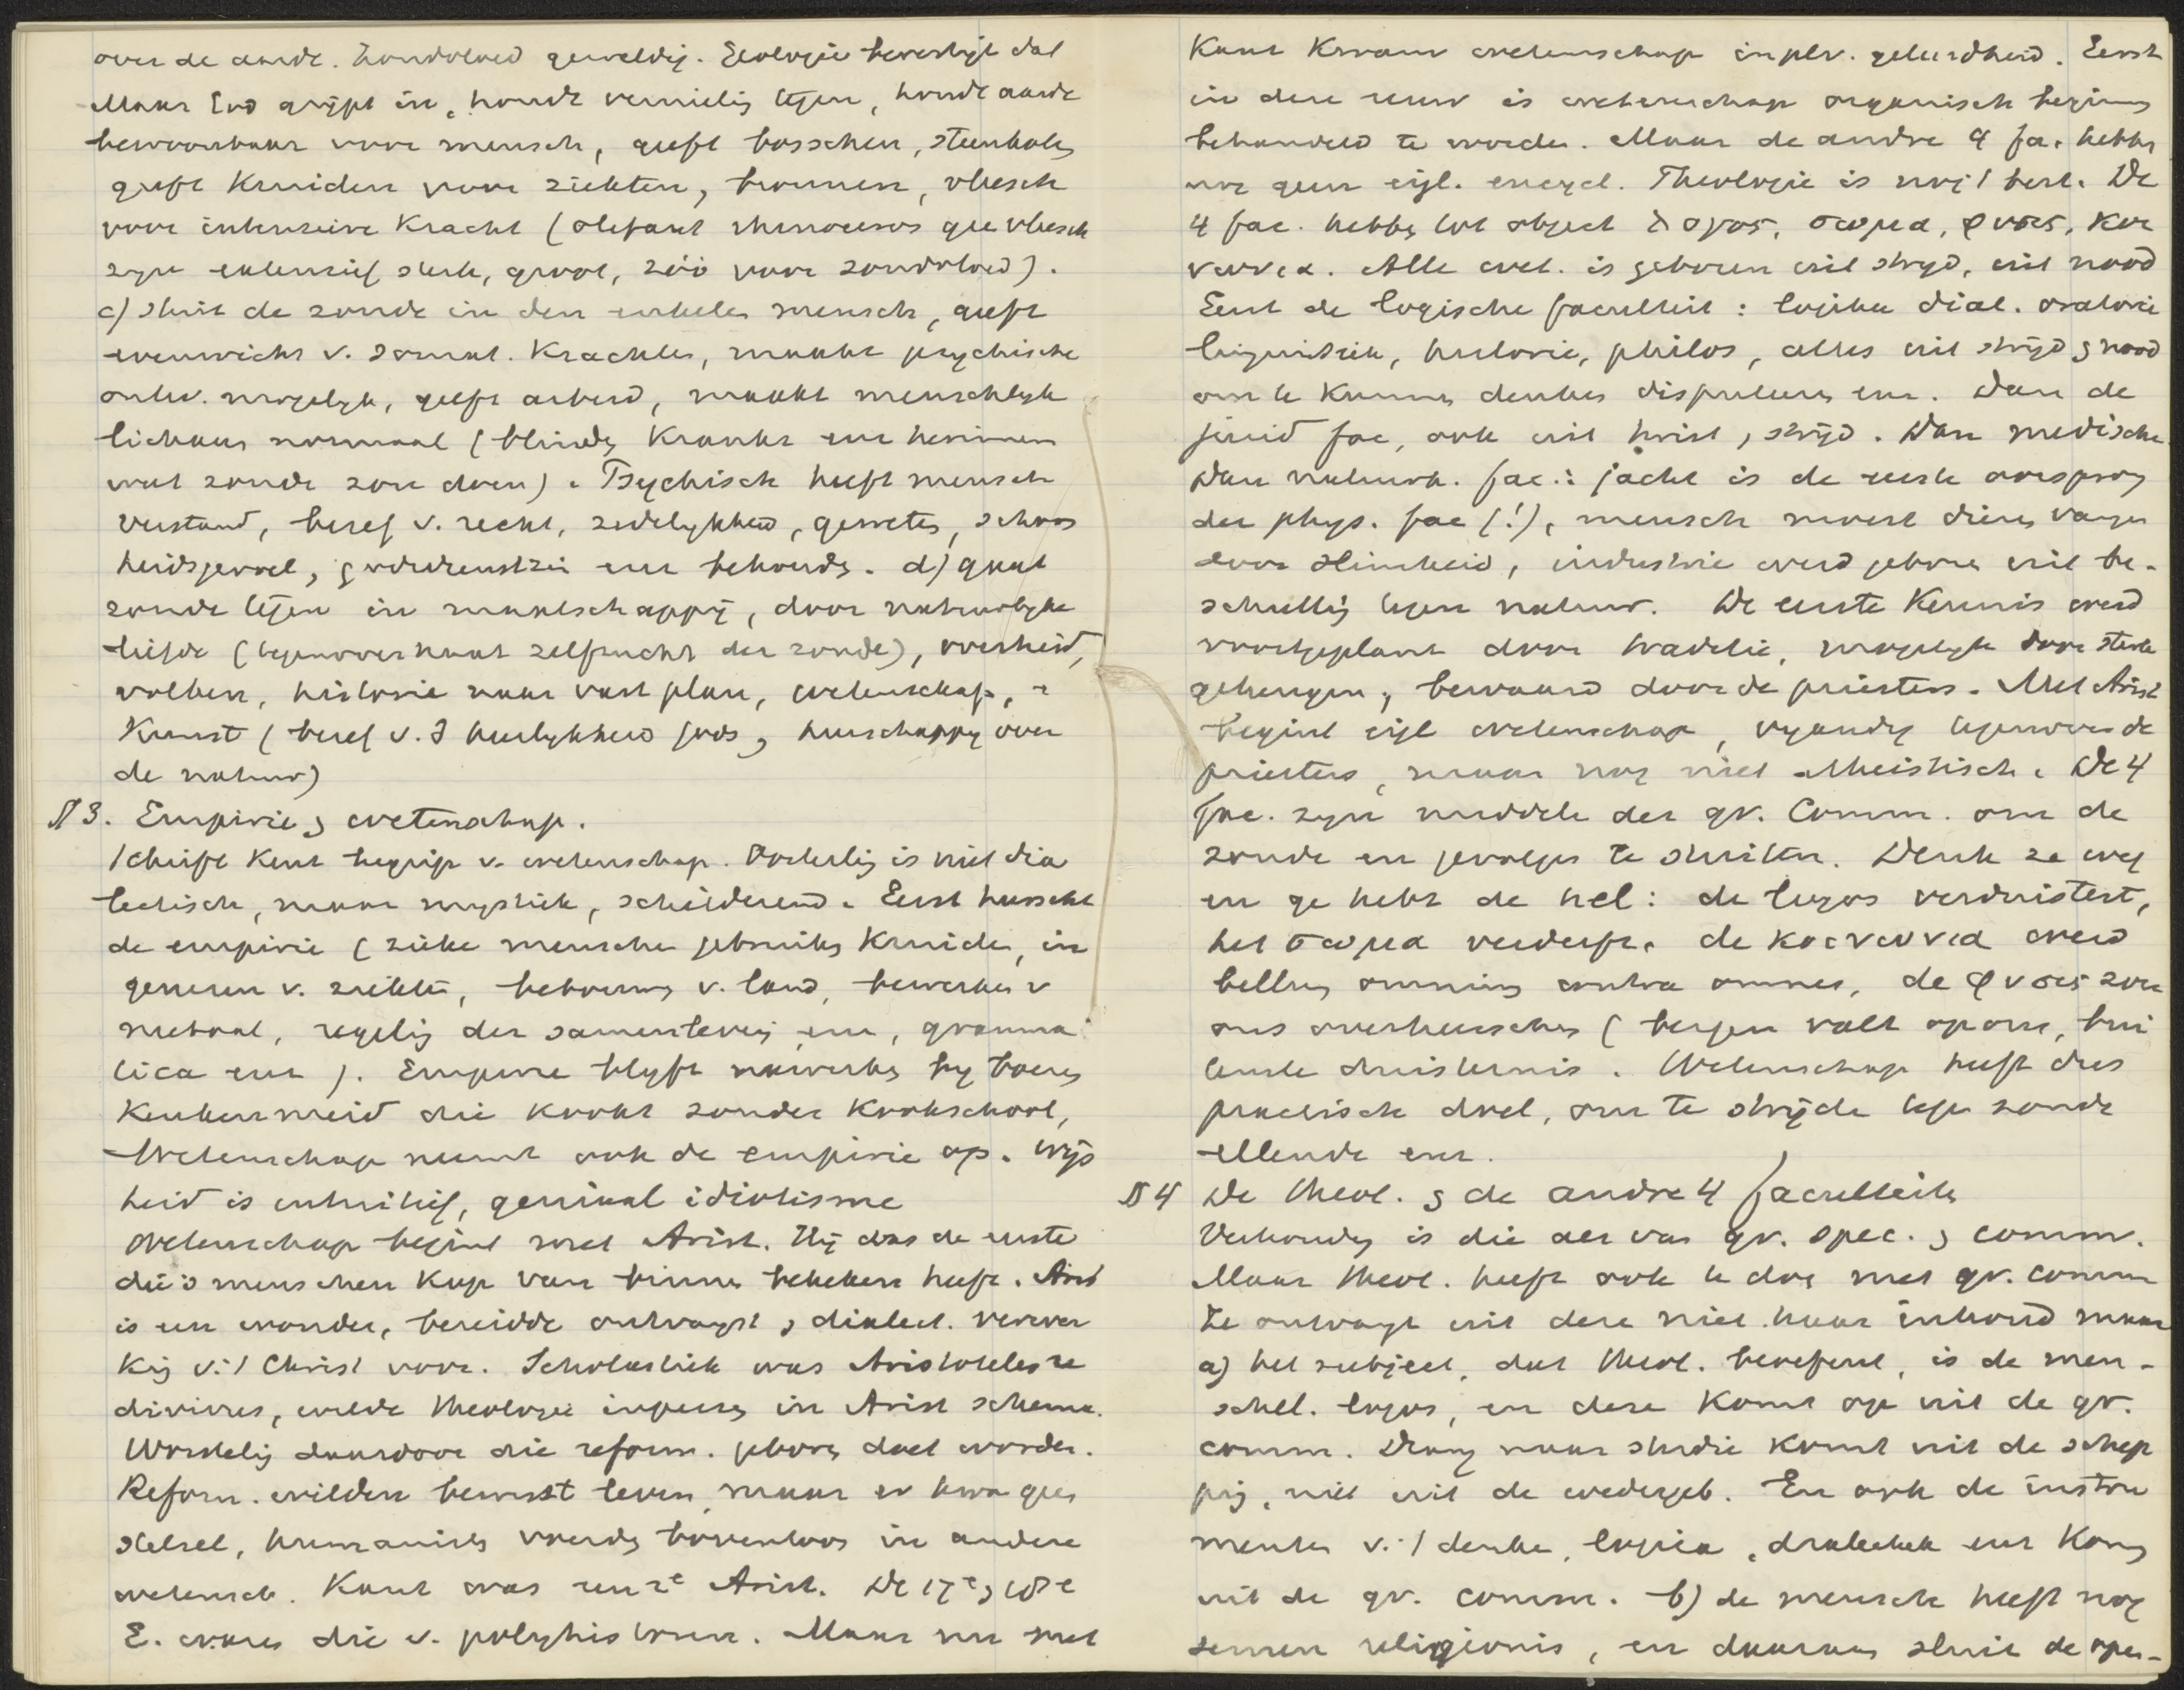 over de aarde. Zondvloed geweldig. Geologie bevestigt dat
Maar God grijpt in, houdt vernielig tegen, houdt aarde
bewoonbaar voor mensch, geeft bosschen, steenkolen
geeft Kruiden voor ziekten, bronnen, vleesch
voor intensieve Kracht (olifant rhinoceros gee vleesch
zyn extensief sterk, groot, zóó voor zondvloed).
c) stuit de zonde in den enkelen mensch, geeft
evenwicht v. somat. Krachten, maakt psychische
ontw. mogelyk, geeft arbeid, maakt menschelyk
lichaam normaal (blinden Kranken enz herinneren
wat zonde zou doen). Psychisch heeft mensch
verstand, besef v. recht, zedelykheid, geweten, schoon
heidsgevoel, godsdienstzin enz behouden. d) gaat
zonde tegen in maatschappij, door natuurlyke
liefde (tegenover haat zelfzucht der zonde), overheid,
volken, historie naar vast plan, wetenschap,
Kunst (besef v. d heerlykheid Gods, heerschappy over
de natuur)
§ 3. Empirie & wetenschap.
Schrift Kent begrip v. wetenschap. Oosterlig is niet dia
lectisch, maar mystiek, schilderend. Eerst heerscht
de empirie (zieke menschen gebruiken Kruiden, in
genezen v. ziekten, bebouwen v. land, bewerken v
metaal, regelig der samenlevig enz, gramma
tica enz). Empirie blyft nawerken by boeren
Keukenmeid die kookt zonder Kookschool,
Wetenschap neemt ook de empirie op. Wijs
heid is intuitief, geniaal idiotisme
Wetenschap begint met Arist. Hij was de eerste
die 's menschen Kop van binnen bekeken heeft. Arist
is een wonder, bereidde ontvangst & dialect. verwer
kig v. 't Christ voor. Scholastiek was Aristoteles re
divivus, wilde theologie inpersen in Arist schema.
Worstelig daardoor die reform. geboren doet worden.
Reform. wilden bewust leven, maar er kwa geen
stelsel, humanisten voerden boventoon in andere
wetensch. Kant was een 2e Arist. De 17e & 18e
E. waren die v. polyhistoren. Maar nu met
Kant Kwam wetenschap in plv. geleerdheid. Eerst
in deze eeuw is wetenschap organisch beginnen
behandeld te worden. Maar de andre 4 fa. hebben
nog geen eigl. encycl. Theologie is nog 't best. De
4 fac. hebben tot object λογος, σωμα, φυσις, κοι
νωνια. Alle wet. is geboren uit strijd, uit nood
Eerst de logische faculteit: logika dial. oratorie
linguistiek, historie, philos, alles uit strijd & nood
om te Kunnen denken disputeren enz. Dan de
jurid fac, ook uit twist, strijd. Dan medische
Dan natuurk. fac.: jacht is de eerste oorsprong
der phys. fac (!), mensch moest dieren vangen
door slimheid, industrie werd geboren uit be-
schuttig tegen natuur. De eerste Kennis werd
voortgeplant door traditie, mogelyk door sterke
geheugen, bewaard door de priesters. Met Arist
begint eigl wetenschap, vyandig tegenover de
priesters, maar nog niet atheistisch. De 4
fac. zyn middelen der gr. Comm. om de
zonde en gevolgen te stuiten. Denk ze weg
en ge hebt de hel: de logos verduistert,
het σωμα verderft, de κοινωνια werd
bellum omnium contra omnes, de φυσις zou
ons overheerschen (bergen valt op ons, bui
tenste duisternis. Wetenschap heeft dus
practisch doel, om te strijden tegen zonde
ellende enz.
§ 4 De theol. & de andre 4 faculteiten
Verhouding is die als van gr. spec. & comm.
Maar theol. heeft ook te doen met gr. comm
Ze ontvangt uit deze niet haar inhoud maar
a) het subject, dat theol. beoefent, is de men-
schel. logos, en deze Komt op uit de gr.
comm. Drang naar studie komt uit de schep
pig, niet uit de wedergeb. En ook de instru
menten v. 't denken, logica, dialectiek enz Komen
uit de gr. comm. b) de mensch heeft nog
semen religionis, en daaraan sluit de open-